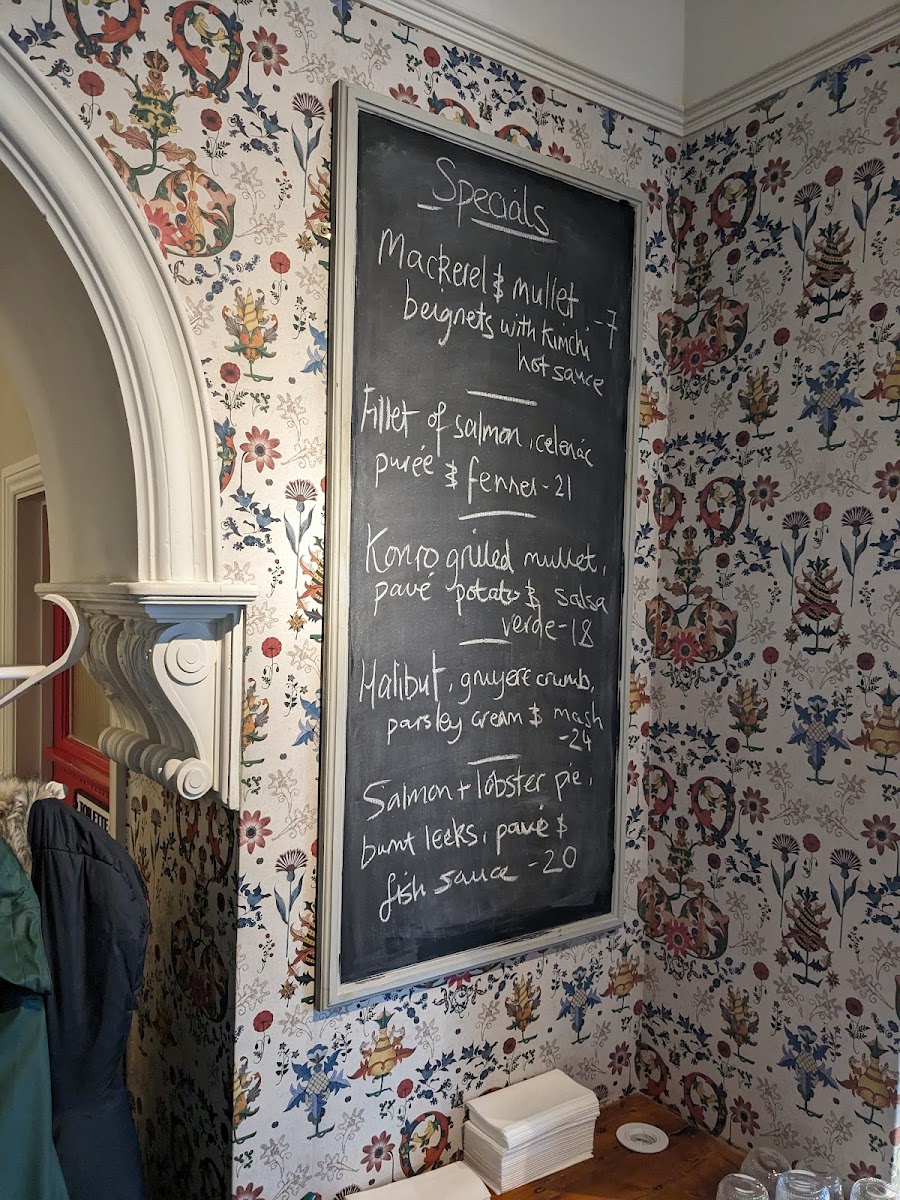 Specials
Mackerel & mullet
beignets with kimchi -7
hot sauce
Fillet of salmon, celeriac
purée & fennel - 21
Konro grilled mullet,
pavé potato & salsa
verde - 18
Halibut, gruyere crumb,
parsley cream & mash
- 24
Salmon + lobster pie,
burnt leeks, pavé &
fish sauce - 20